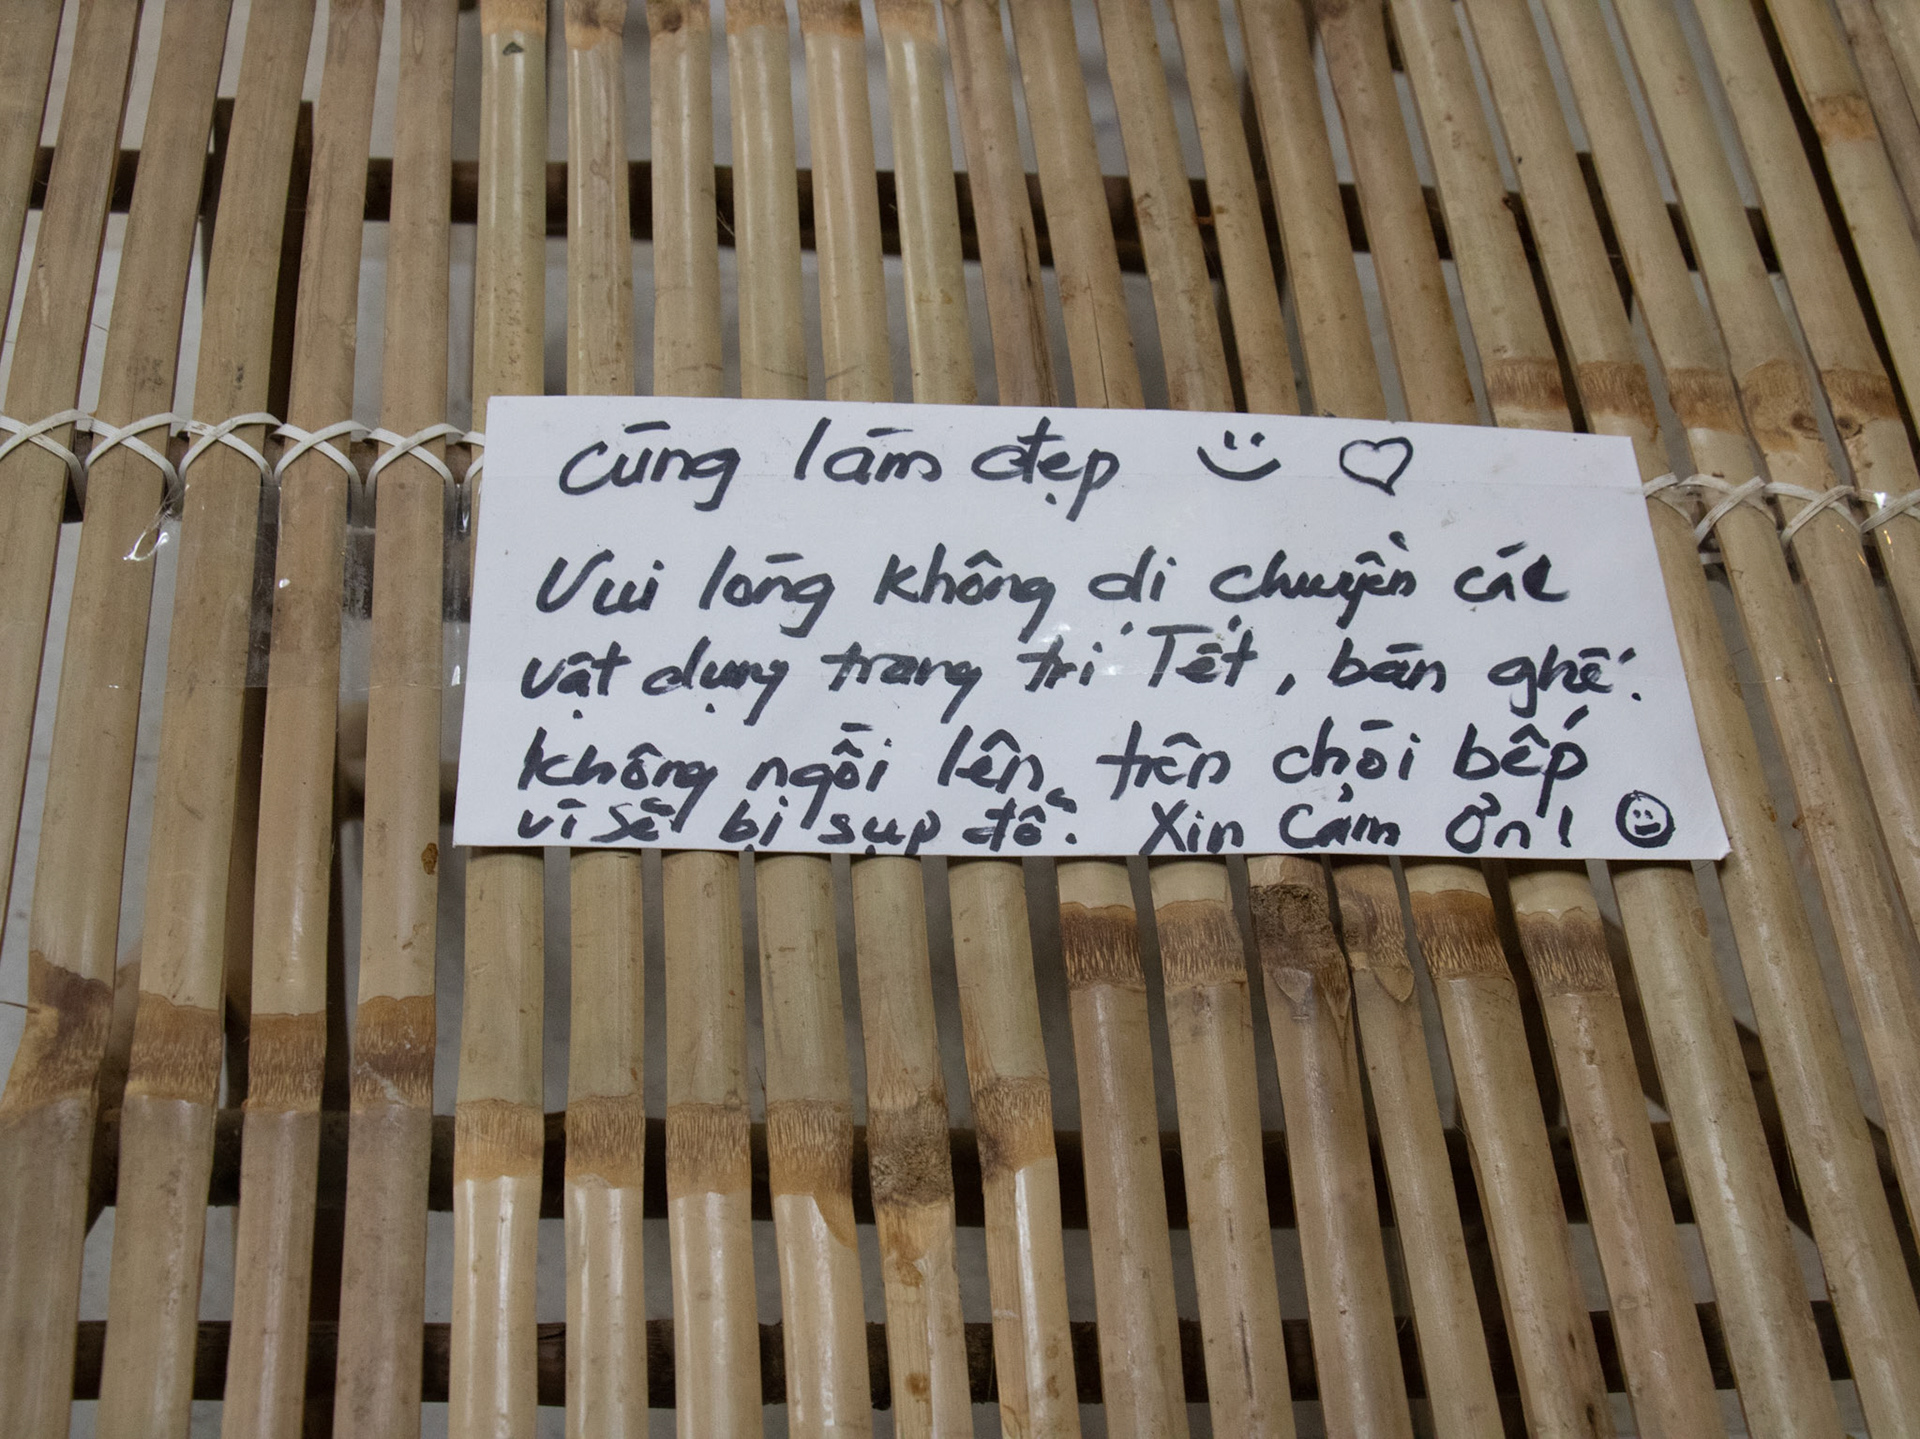 Cùng làm đẹp
Vui lòng không di chuyển các
vật dụng trang trí Tết, bàn ghế.
Không ngồi lên, trên chòi bếp
vì sẽ bị sụp đổ. Xin Cảm Ơn!